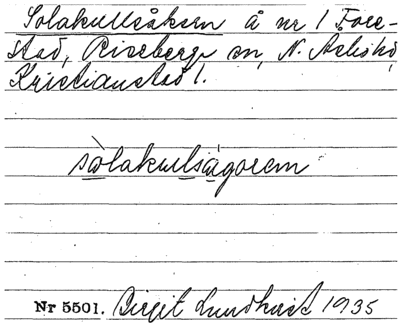 Solakullsåkern å nr 1 Fore-
stad, Riseberga sn, N. Åsbo hd,
Kristianstad l.
sòlakulságorem
Nr 5501. Birgit Lundkvist 1935